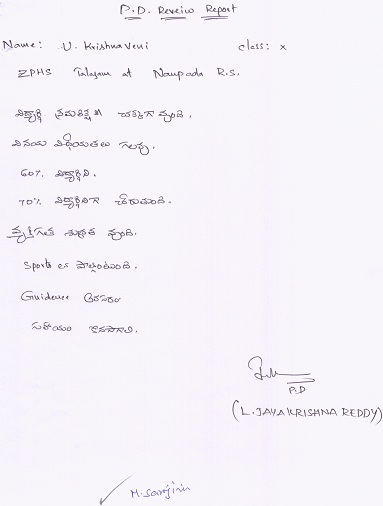 P.D. Reveiw Report
Name: U. Krishnaveni class: x
ZPHS Talagam at Naupada R.S.
విద్యార్థి క్రమశిక్షణ చక్కగా వుంది.
వినయ విధేయతలు గలవు.
60% విద్యార్థిని.
70% విద్యార్థినిగా చేరుతుంది.
వ్యక్తిగత శుభ్రత వుంది.
Sports లో పాల్గొంటుంది.
Guidence అవసరం
సహాయం కొనసాగాలి.
P.D
(L. JAYAKRISHNA REDDY)
M. Sarojini